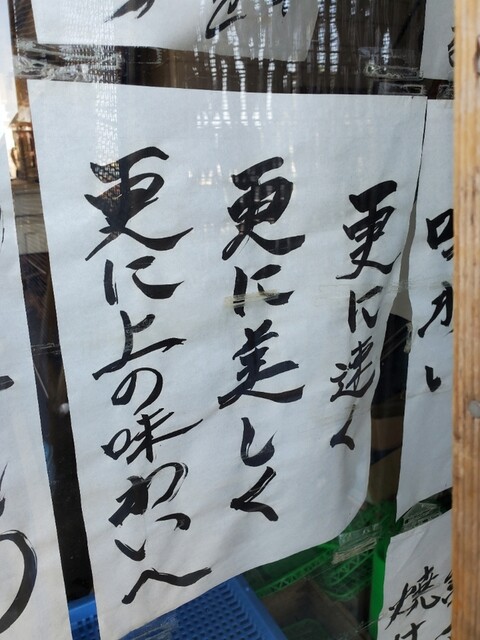 更に速く
更に美しく
更に上の味わいへ
味わい
焼